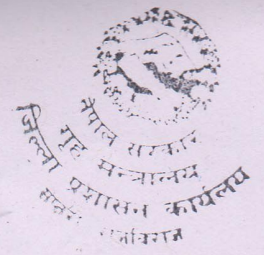 नेपाल सरकार
गृह मन्त्रालय
जिल्ला प्रशासन कार्यालय
राजविराज